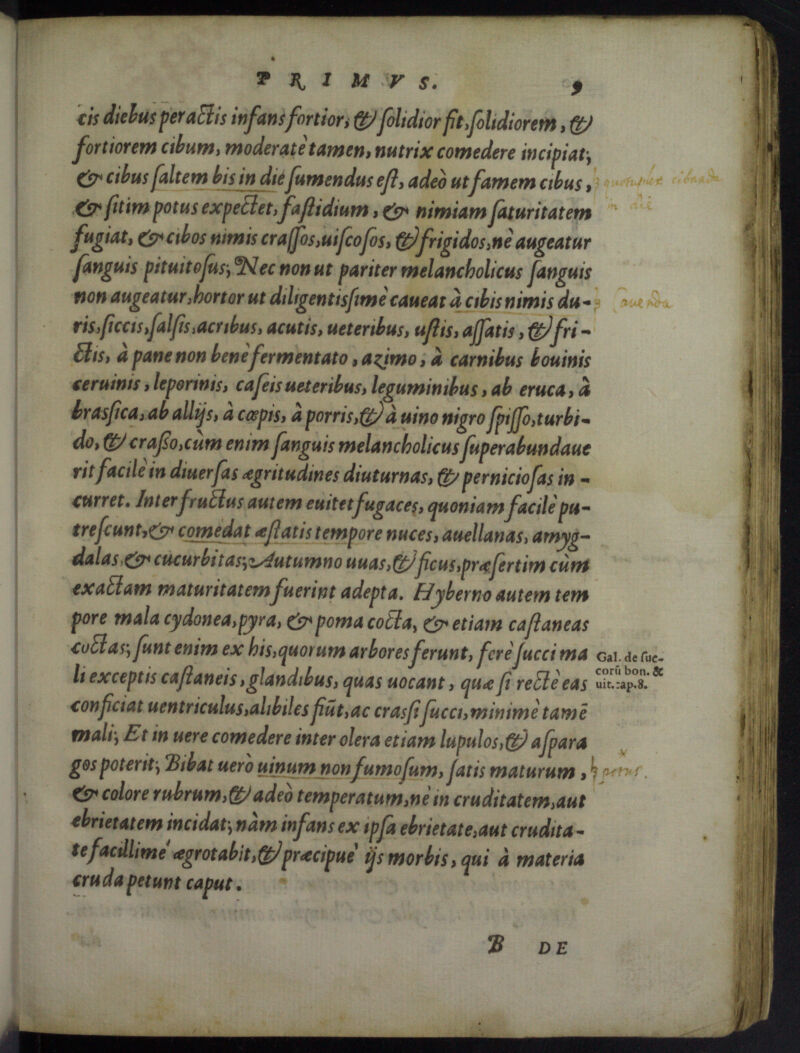 PRIMVS. 9
cis diebus peractis infans fortior, & solidior fit, solidiorem, &
fortiorem cibum, moderatè tamen, nutrix comedere incipiat;
& cibus saltem bis in die sumendus est, adeò ut famem cibus,
& sitim potus expectet, fastidium, & nimiam saturitatem
fugiat, & cibos nimis crassos, uiscosos, & frigidos, nè augeatur
sanguis pituitosus; Nec non ut pariter melancholicus sanguis
non augeatur, hortor ut diligentissimè caueat à cibis nimis du-
cauenda
ris, siccis, salsis, acribus, acutis, ueteribus, ustis, assatis, & fri-
ctis, à pane non benè fermentato, azimo, à carnibus bouinis
ceruinis, leporinis, caseis ueteribus, leguminibus, ab eruca, à
brassica, ab allijs, à cœpis, à porris, & à uino nigro spisso, turbi-
do, & crasso, cùm enim sanguis melancholicus superabundaue
rit facilè in diuersas ægritudines diuturnas, & perniciosas in-
curret. Inter fructus autem euitet fugaces, quoniam facilè pu-
trescunt, & comedat æstatis tempore nuces, auellanas, amyg-
dalas, & cucurbitas; Autumno uuas, & ficus, præsertim cùm
exactam maturitatem fuerint adepta. Hyberno autem tem
pore mala cydonea, pyra, & poma cocta, & etiam castaneas
coctas; sunt enim ex his, quorum arbores ferunt, ferè succi ma
Gal. de suc-
li exceptis castaneis, glandibus, quas uocant, quæ si rectè eas
corū bon. &
uit. cap. 8.
conficiat uentriculus, alibiles fiūt, ac crassi succi, minimè tamē
mali; Et in uere comedere inter olera etiam lupulos, & aspara
gos poterit; Bibat uerò uinum non fumosum, satis maturum,
& colore rubrum, & adeò temperatum, nè in cruditatem, aut
ebrietatem incidat; nàm infans ex ipsa ebrietate, aut crudita-
te facillimè ægrotabit, & præcipuè ijs morbis, qui à materia
cruda petunt caput.
B DE